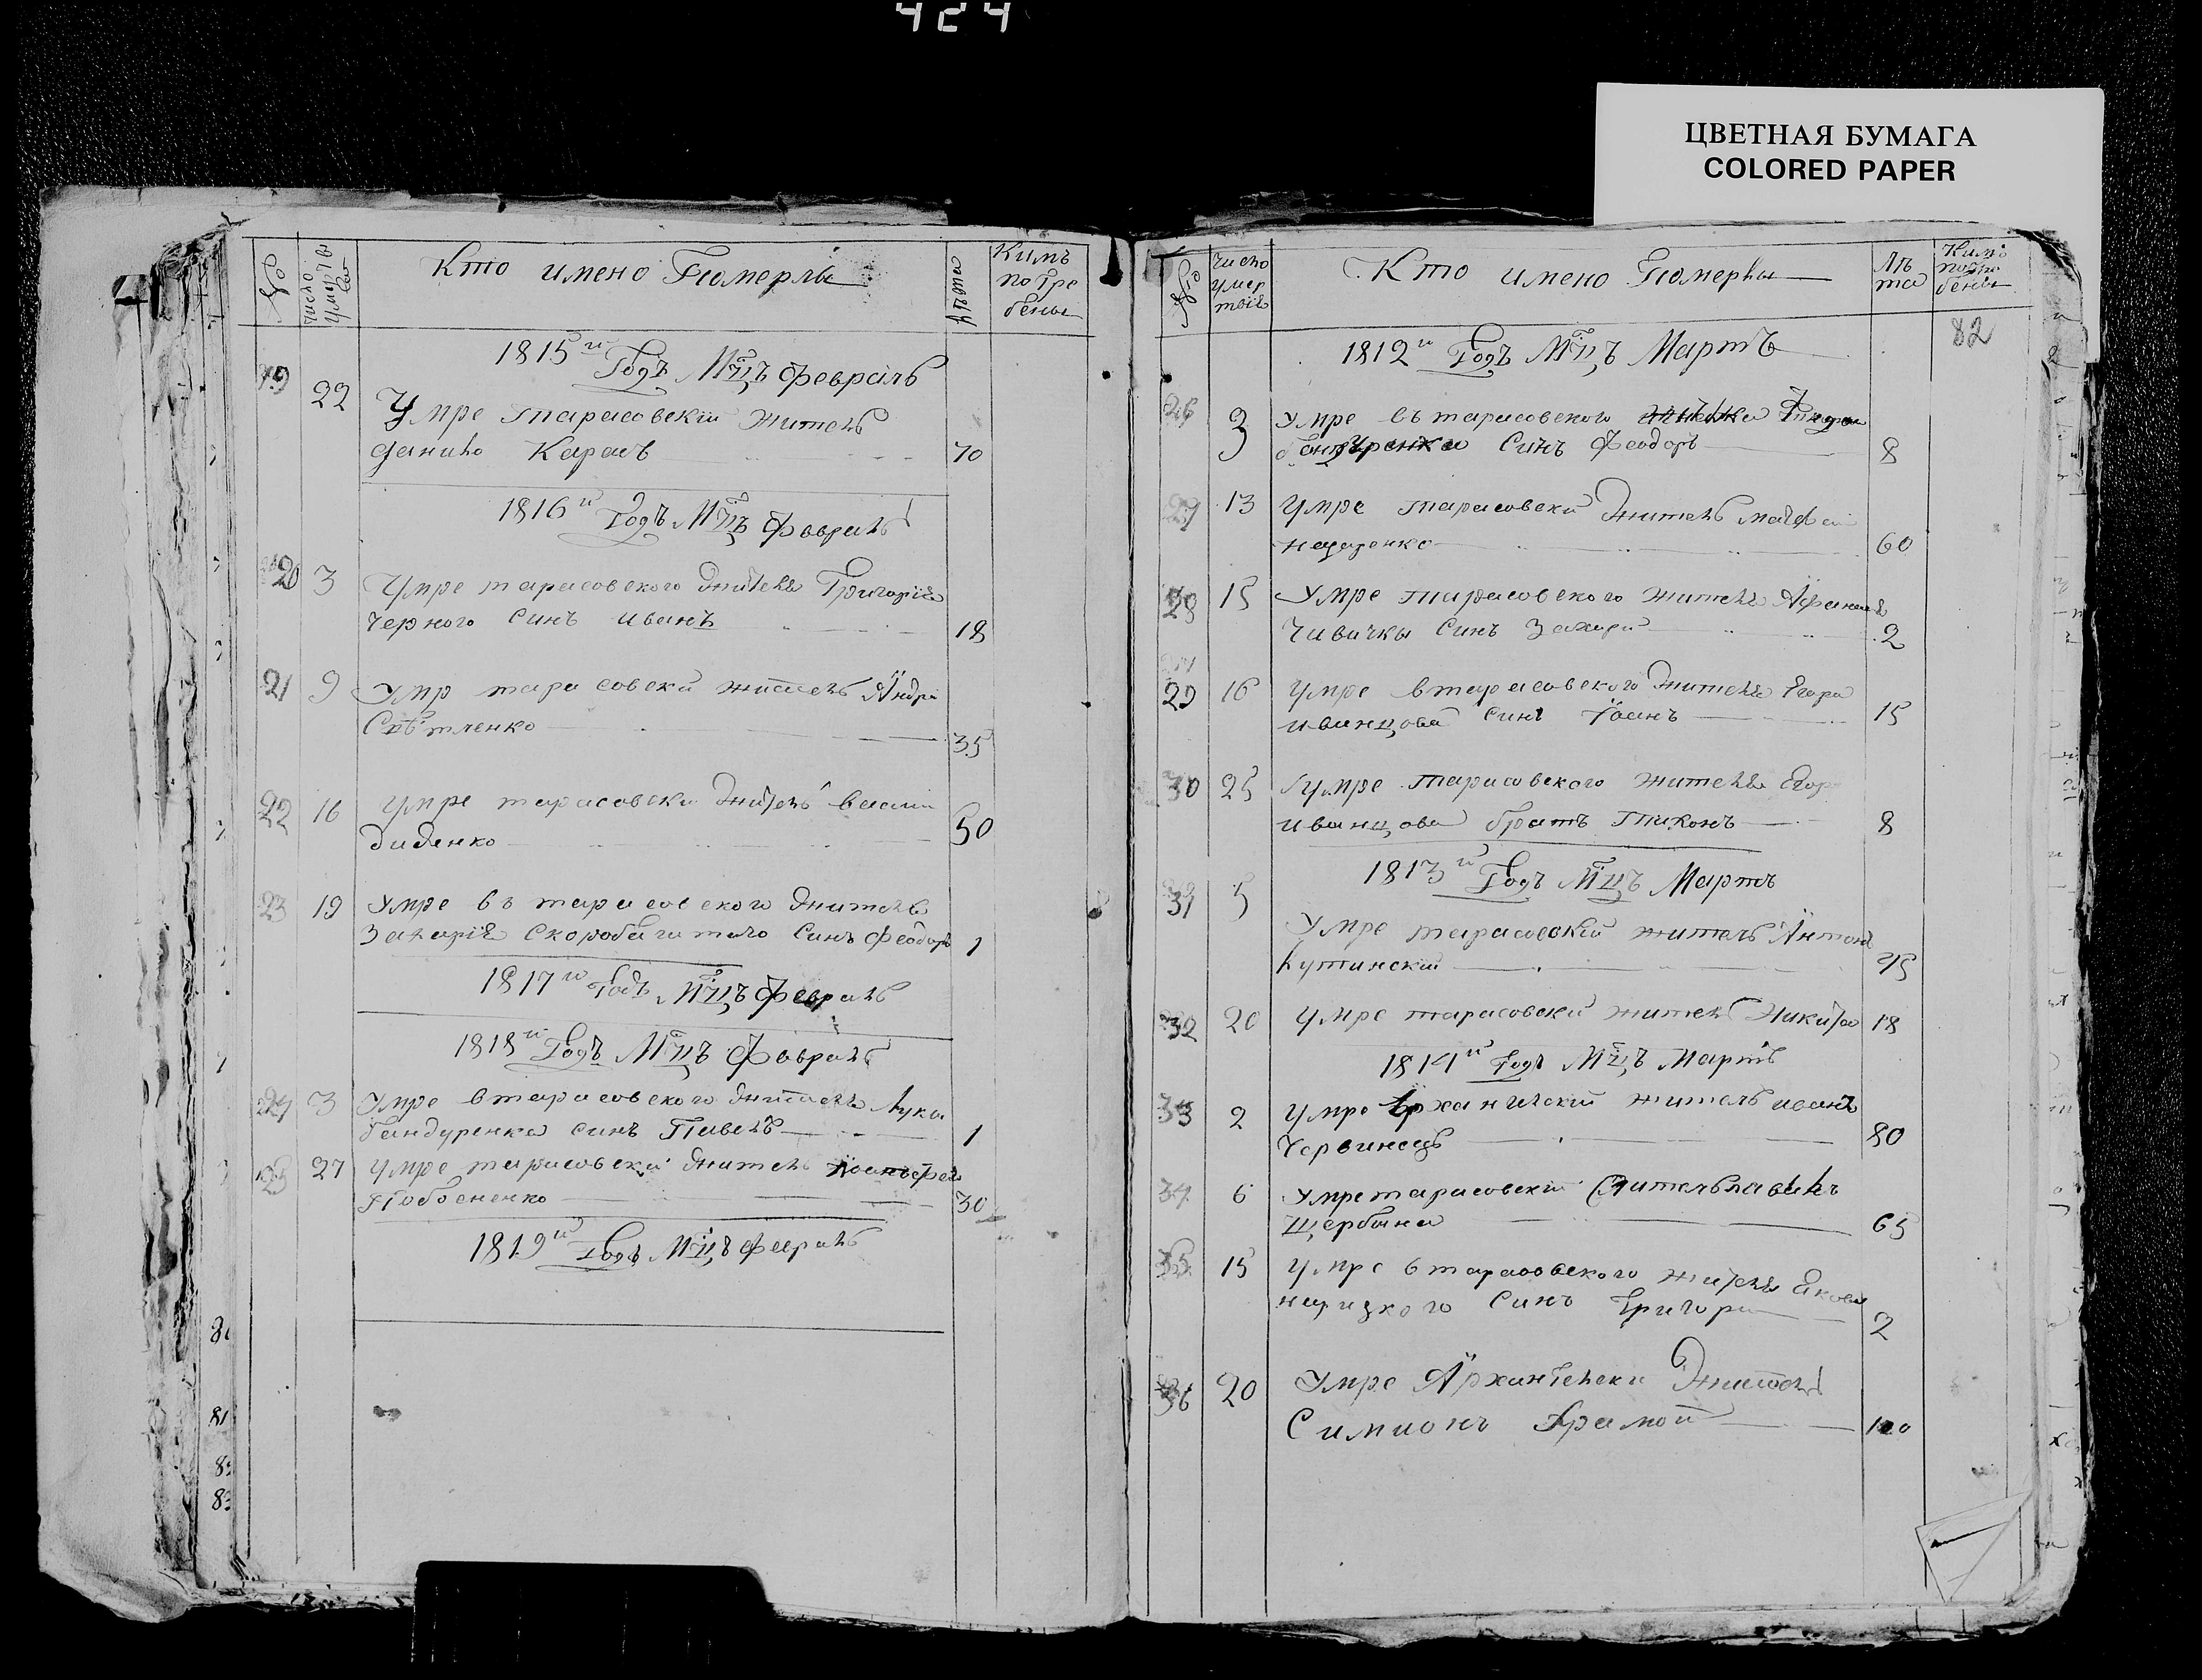 424
ЦВЕТНАЯ БУМАГА
COLORED PAPER
№
число
Кто имено Померлы
лѣта
Кимъ
погре
бены
1815й Годъ Мцъ февраль
19 22 Умре тарасовскій житель
данило Карачъ 70
1816й Годъ Мцъ февраль
20 3 Умре тарасовского жителя Григорія
черного синъ иванъ 18
21 9 умр тарасовски житель Андрі
35
22 16 умре тарасовски житель васили
диденко 50
23 19 умре въ тарасовского жителя
Захарія Скоробагатого синъ феодоръ 1
1817й Годъ Мцъ февраль
1818й Годъ Мцъ февраль
24 3 умре втарасовского жителя луки
бандуренка синъ Павелъ 1
25 27 умре тарасовски житель
30
1819й Годъ Мцъ февраль
81
№
число
умер
твія
Кто имено Померлы
лѣ
та
Кимъ
погре
бены
82
1812й Годъ Мцъ Мартъ
26 3 умре въ тарасовского
бандуренка синъ феодоръ 8
27 13 умре тарасовски житель матфей
назаренко 60
28 15 умре тарасовского жителя Афанасія
чивички синъ Захари 2
29 16 умре втарасовского жителя Егора
иванцова синъ Іоанъ 15
30 25 умре тарасовского жителя Егор
иванцова братъ тихонъ 8
1813й Годъ Мцъ Мартъ
31 5
умре тарасовскій житель Антонъ
кутински
32 20 умре тарасовски житель Никита 18
1814й Годъ Мцъ Мартъ
33 2 умре житель иванъ
червинецъ 80
34 6 умре тарасовски житель павелъ
щербина 65
35 15 умре втарасовского жителя Якова
синъ григори 2
36 20 умре Архангелски житель
Симионъ 100